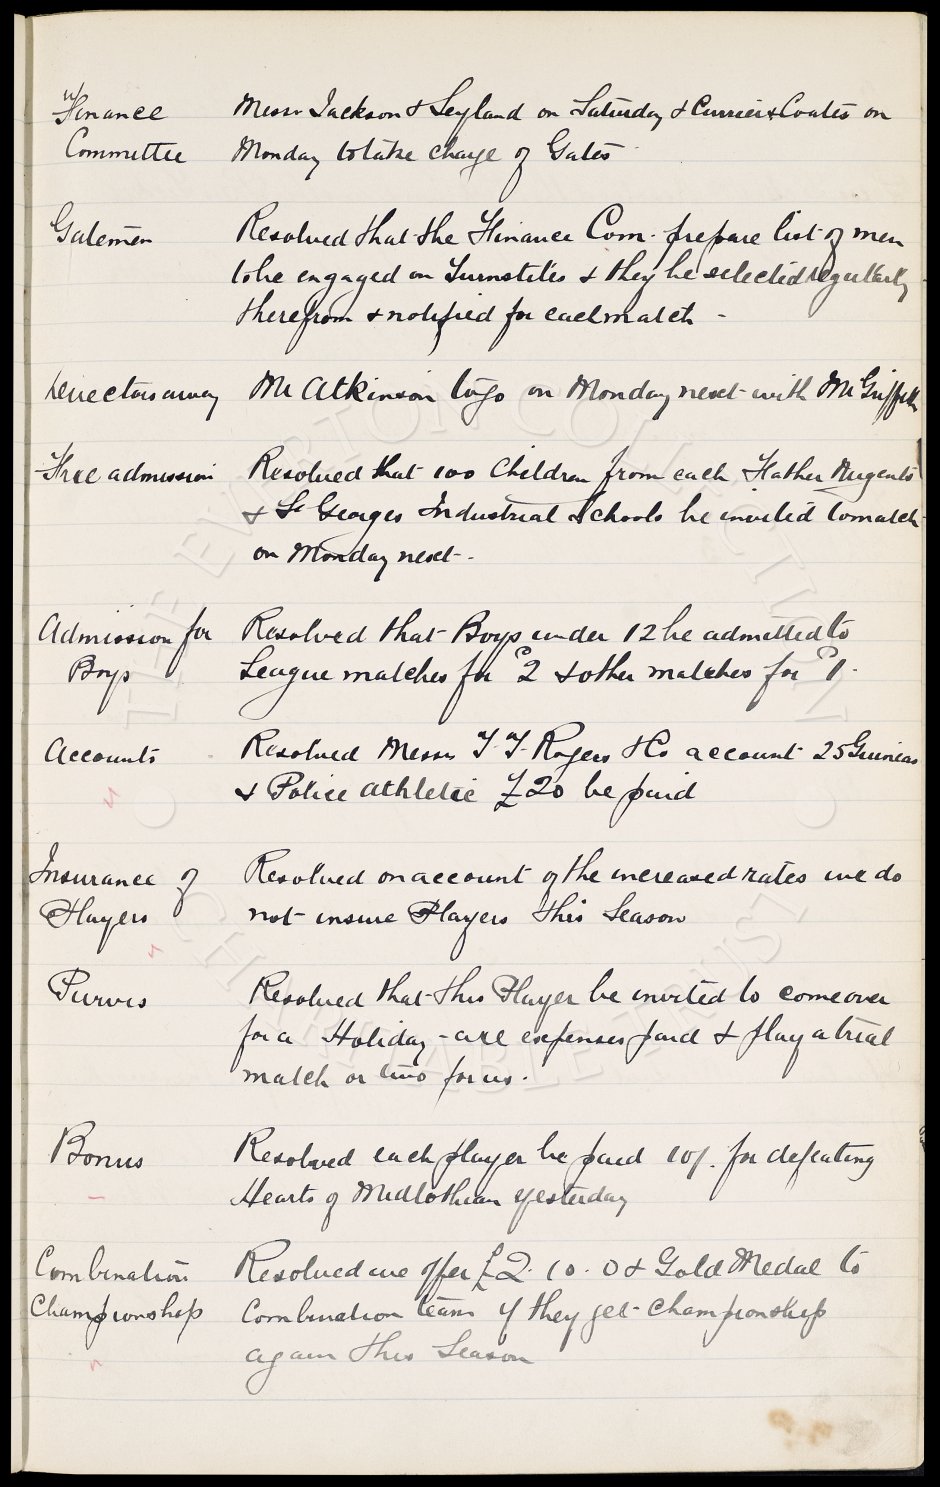 Finance Messrs Jackson & Leyland on Saturday & Currier & Coates on
Committee Monday to take charge of Gates
Gatemen Resolved that the Finance Com. prepare list of men
to be engaged on Turnstiles & they be selected regularly
therefrom & notified for each match -
Directors away Mr Atkinson to go on Monday next with Mr Griffith
Free admission Resolved that 100 Children from each Father Nugents
& St Georges Industrial Schools be invited to match
on Monday next -
Admission for Resolved that Boys under 12 be admitted to
Boys League matches for 2d & other matches for 1d.
Accounts Resolved Messrs T. T. Rogers & Co account 25 Guineas
& Police Athletic £20 be paid
Insurance of Resolved on account of the increased rates we do
Players not insure Players this Season
Purves Resolved that this Player be invited to come over
for a Holiday - all expenses paid & play a trial
match or two for us.
Bonus Resolved each player be paid 10/. for defeating
Hearts of Midlothian yesterday
Combination Resolved we offer £2. 10. 0 & Gold Medal to
Championship Combination team if they get Championship
again this Season
THE EVERTON COLLECTION
CHARITABLE TRUST